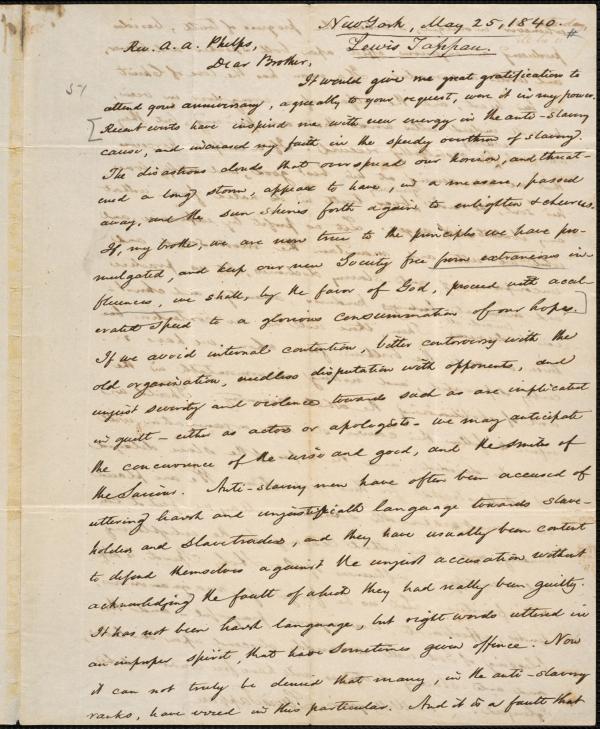 New York, May 25, 1840.
#
Rev. A. A. Phelps,
Lewis Tappan.
Dear Brother,
51
It would give me great gratification to
attend your anniversary, agreeably to your request, were it in my power.
[Recent events have inspired me with new energy in the anti-slavery
cause, and increased my faith in the speedy overthrow of slavery.
The disastrous clouds that overspread our horizon, and threat-
ened a long storm, appear to have, in a measure, passed
away, and the sun shines forth again to enlighten & cheer us.
If, my brother, we are now true to the principles we have pro-
mulgated, and keep our new Society free from extraneous in-
fluences, we shall, by the favor of God, proceed with accel-
erated speed to a glorious consummation of our hopes.]
If we avoid internal contention, bitter controversy with the
old organization, needless disputation with opponents, and
unjust severity and violence towards such as are implicated
in guilt - either as actors or apologists - we may anticipate
the concurrence of the wise and good, and the smiles of
the Saviour. Anti-slavery men have often been accused of
uttering harsh and unjustifiable language towards slave-
holders and slave traders, and they have usually been content
to defend themselves against the unjust accusation without
acknowledging the fault of which they had really been guilty.
It has not been harsh language, but right words uttered in
an improper spirit, that have sometimes given offence. Now
it can not truly be denied that many, in the anti-slavery
ranks, have erred in this particular. And it is a fault that